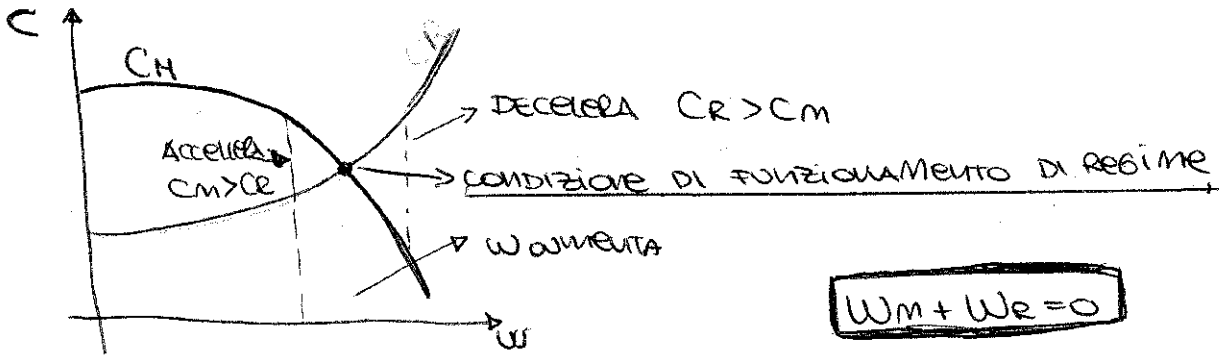 C
CM
CR
DECELERA CR > CM
ACCELERA
CM > CR
CONDIZIONE DI FUNZIONAMENTO DI REGIME
W aumenta
W
WM + WR = 0